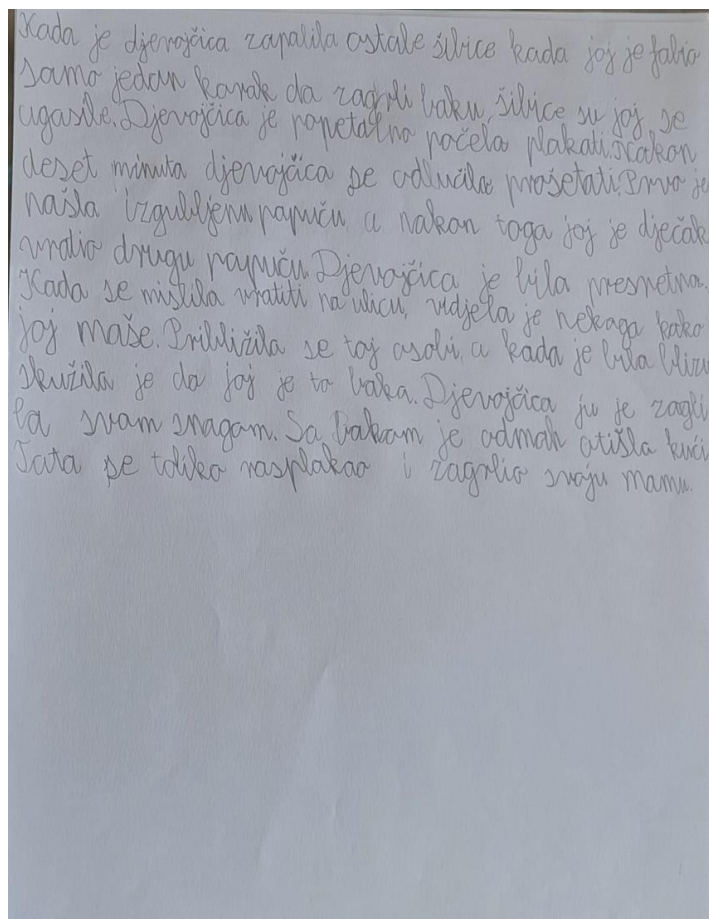 Kada je djevojčica zapalila ostale šibice kada joj je falio
samo jedan korak da zagrli baku, šibice su joj se
ugasile. Djevojčica je ropetalno počela plakati. Nakon
deset minuta djevojčica se odlučila prošetati. Prvo je
našla izgubljenu papuču a nakon toga joj je dječak
vratio drugu papuču. Djevojčica je bila presretna.
Kada se mislila vratiti na ulicu, vidjela je nekoga kako
joj maše. Približila se toj osobi, a kada je bila blizu
skužila je da joj je to baka. Djevojčica ju je zagli
la svom snagom. Sa bakom je odmah otišla kući
Tata se toliko rasplakao i zagrlio svoju mamu.